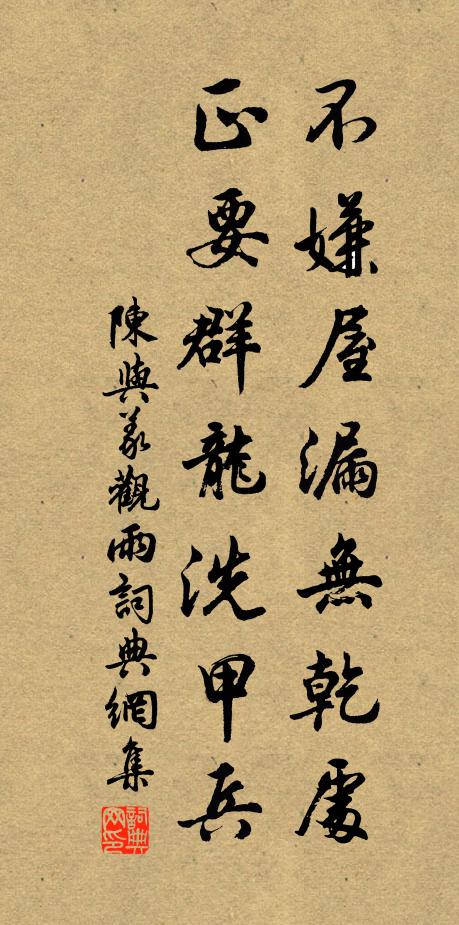 不嫌屋漏無乾處
正要群龍洗甲兵
陳與義觀雨詞典網集
詞典網印